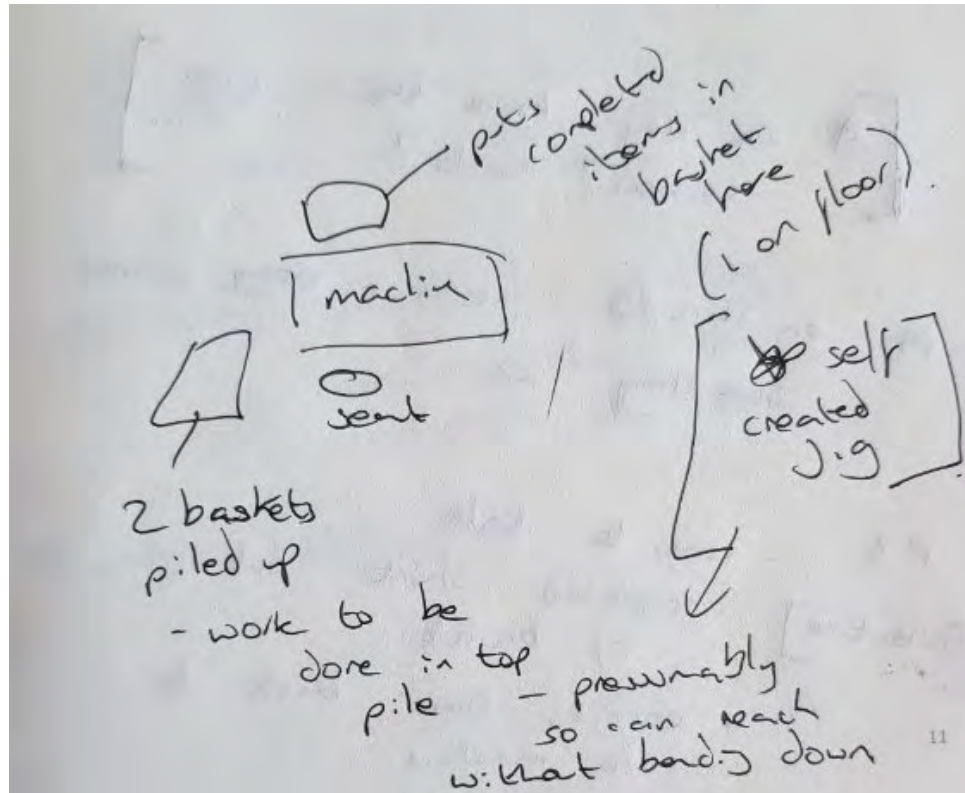 puts
completed
items in
basket
here
(1 on floor).
machine
seat
self
created
jig
2 baskets
piled up
- work to be
done in top
pile - presumably
so can reach
without bending down
11